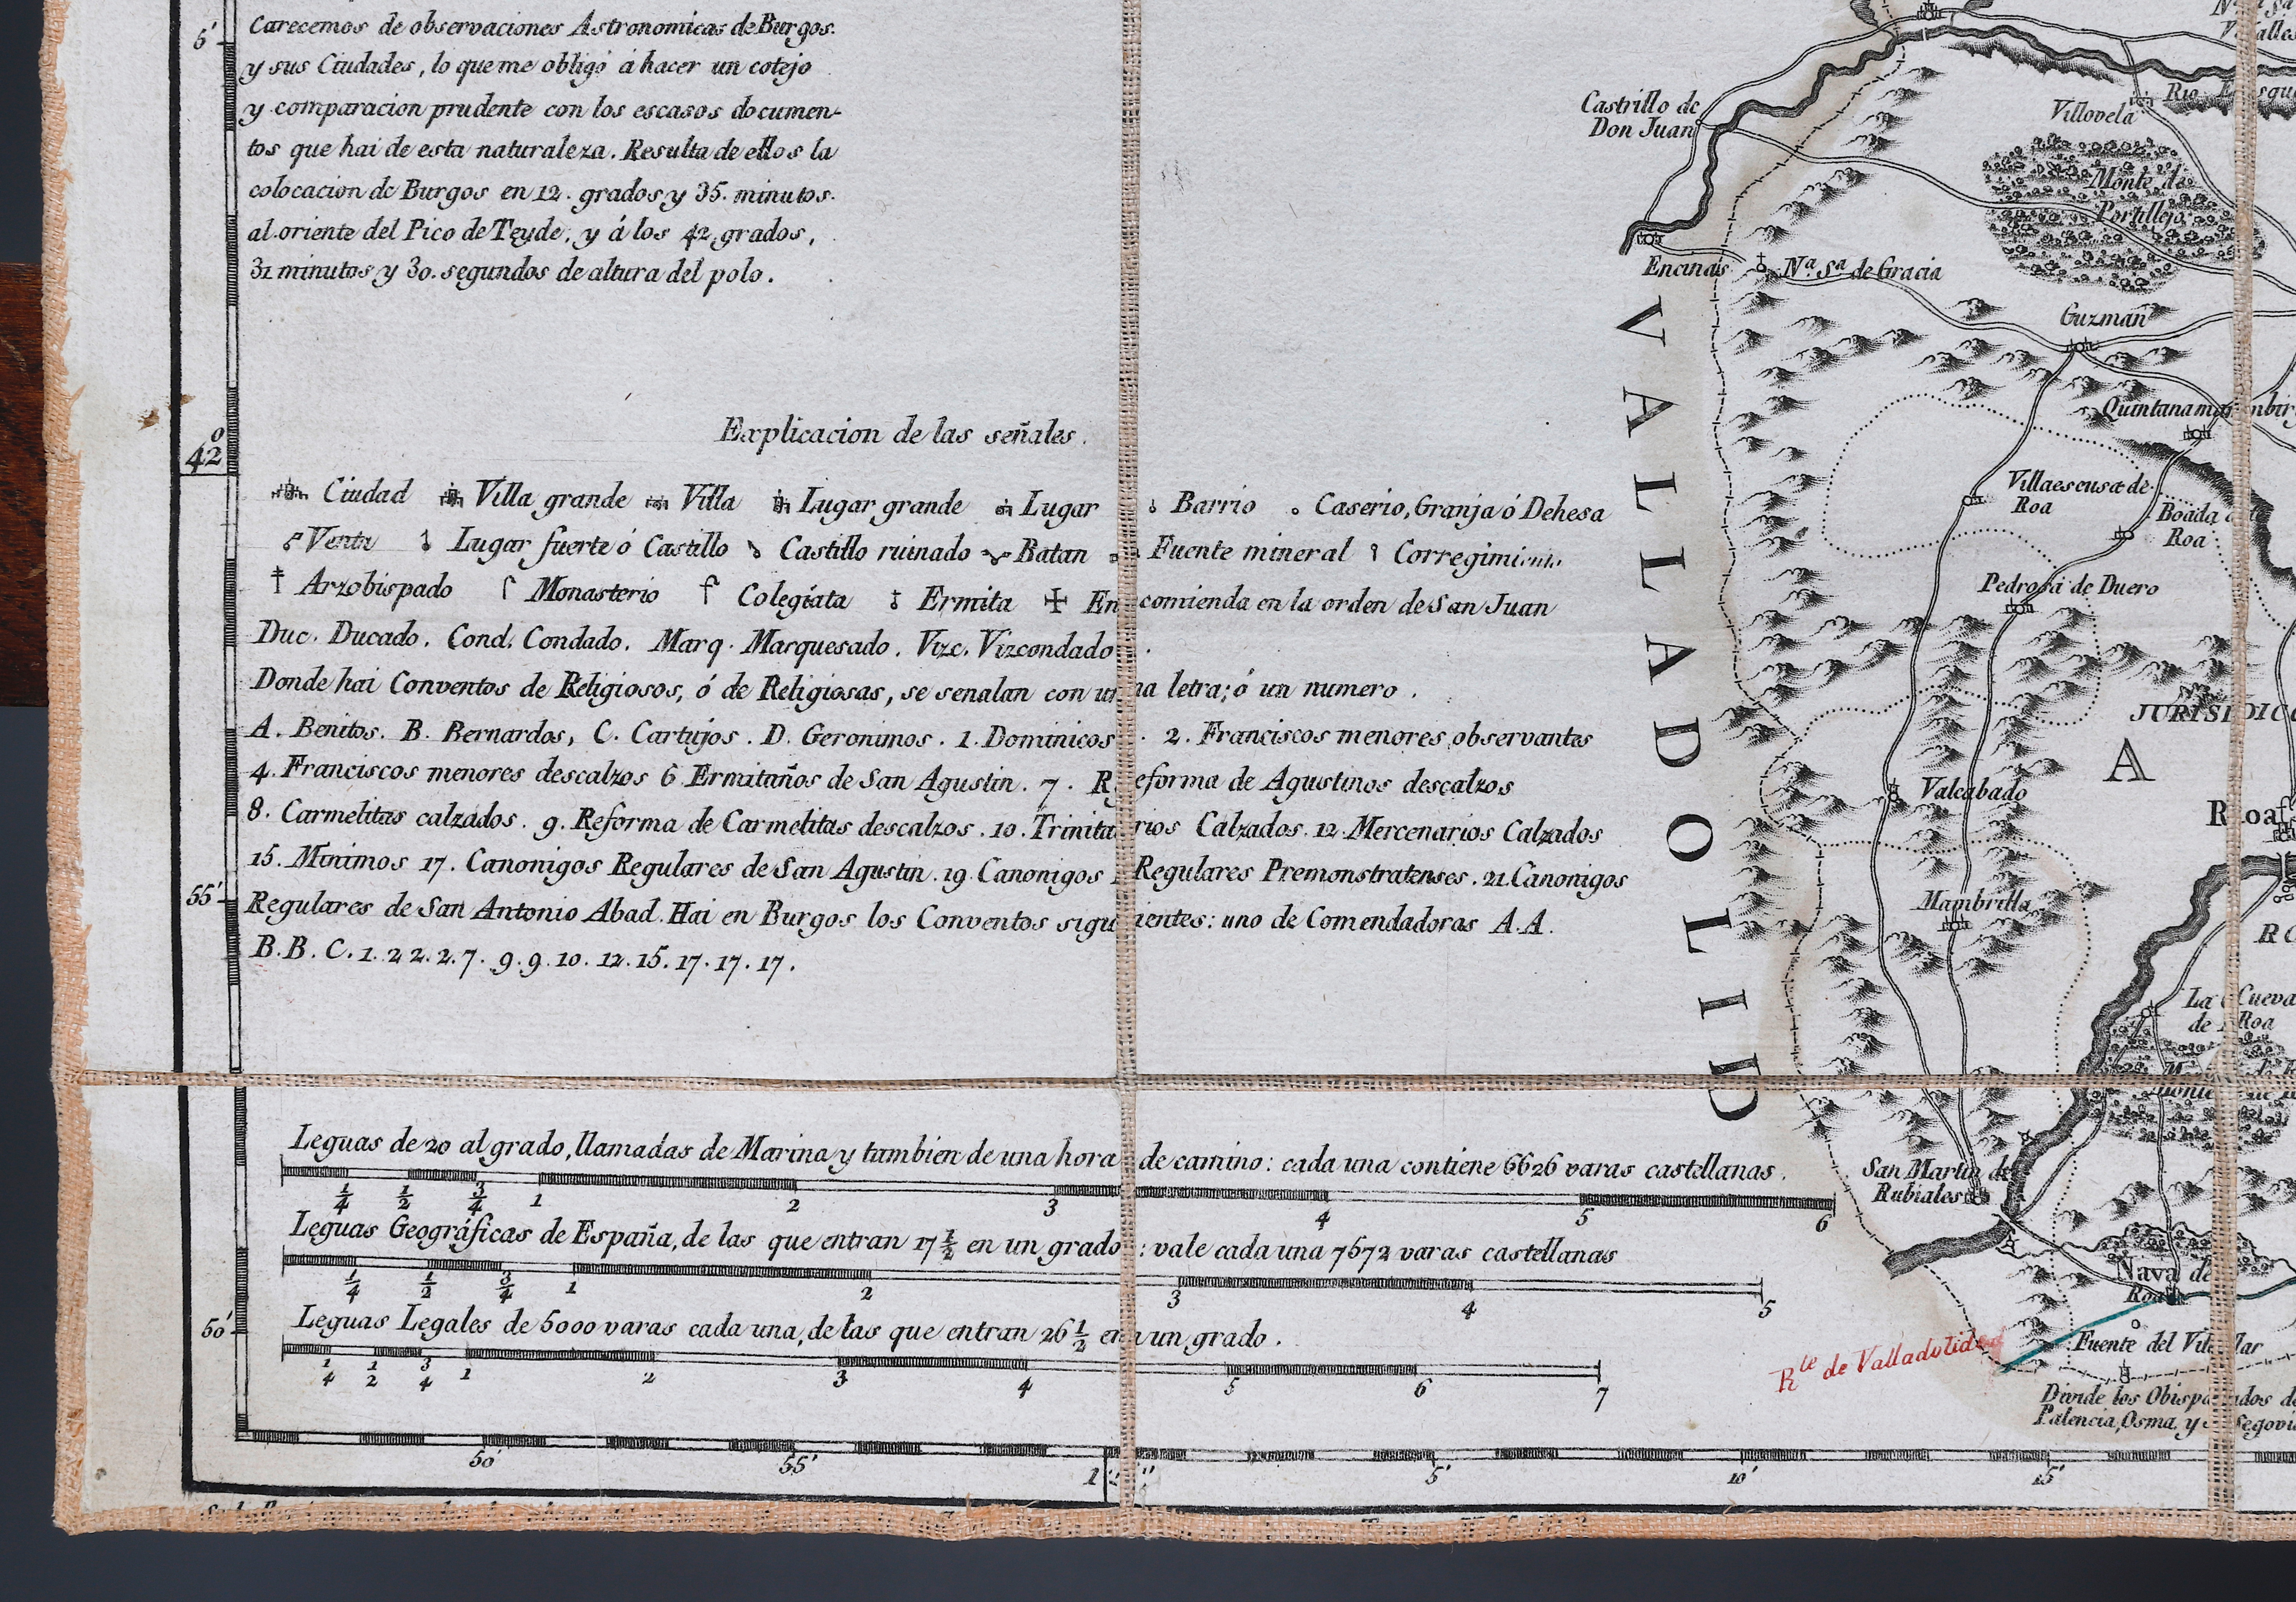 Carecemos de observaciones Astronomicas de Burgos.
y sus Ciudades, lo que me obligó á hacer un cotejo
y comparacion prudente con los escasos documen-
tos que hai de esta naturaleza. Resulta de ellos la
colocacion de Burgos en 12. grados y 35. minutos.
al oriente del Pico de Teyde, y á los 42 grados,
31 minutos y 30. segundos de altura del polo.
Explicacion de las señales.
Ciudad Villa grande Villa Lugar grande Lugar Barrio Caserio, Granja ó Dehesa
Venta Lugar fuerte ó Castillo Castillo ruinado Batan Fuente mineral Corregimiento
Arzobispado Monasterio Colegiata Ermita Encomienda en la orden de San Juan
Duc. Ducado. Cond. Condado. Marq. Marquesado. Vizc. Vizcondado.
Donde hai Conventos de Religiosos, ó de Religiosas, se senalan con una letra; ó un numero.
A. Benitos. B. Bernardos, C. Cartujos. D. Geronimos. 1. Dominicos. 2. Franciscos menores observantes
4. Franciscos menores descalzos 6. Ermitaños de San Agustin. 7. Reforma de Agustinos descalzos
8. Carmelitas calzados. 9. Reforma de Carmelitas descalzos. 10. Trinitarios Calzados. 12. Mercenarios Calzados
15. Minimos 17. Canonigos Regulares de San Agustin. 19. Canonigos Regulares Premonstratenses. 21. Canonigos
Regulares de San Antonio Abad. Hai en Burgos los Conventos siguientes: uno de Comendadoras A.A.
B.B.C.1.2 2.2.7.9.9.10.12.15.17.17.17.
Leguas de 20 al grado, llamadas de Marina y tambien de una hora de camino: cada una contiene 6626 varas castellanas.
1/4 1/2 3/4 1 2 3 4 5 6
Leguas Geográficas de España, de las que entran 17 1/2 en un grado: vale cada una 7572 varas castellanas
1/4 1/2 3/4 1 2 3 4 5
Leguas Legales de 5000 varas cada una, de las que entran 26 1/2 en un grado.
1/4 1/2 3/4 1 2 3 4 5 6 7
5'
42
55'
50'
50' 55' 1 5' 10' 15'
Castrillo de
Don Juan
Villovela
Rio
Monte de
Portillejo
Encinas
Nª. Sª de Gracia
Guzman
VALLADOLID
Villaescusa de
Roa
Boada
Roa
Pedrosa de Duero
JURISDIC
A
Valcabado
Roa
Mambrilla
La Cueva
de Roa
San Martin de
Rubiales
Nava de
Roa
Fuente del
Rte de Valladolid
Divide los Obispados de
Palencia, Osma, y Segovia